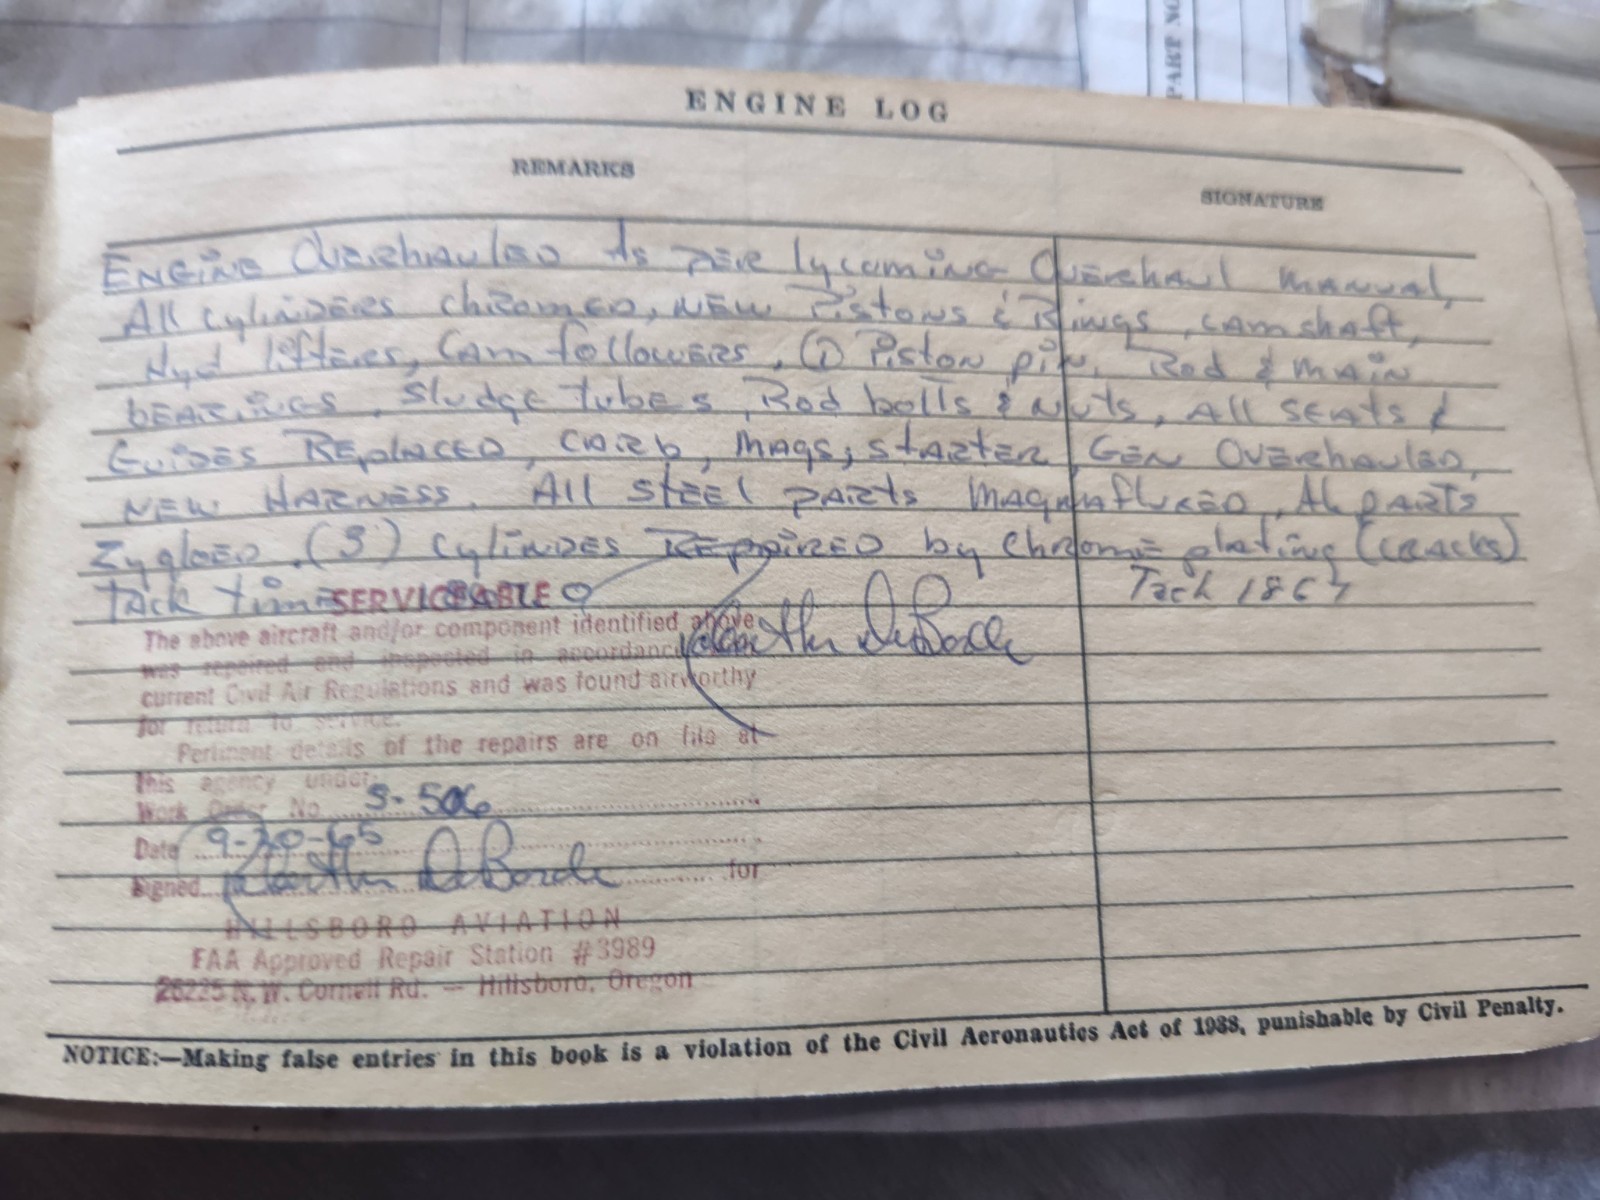 PART NO
ENGINE LOG
REMARKS
SIGNATURE
ENGINE OVERHAULED AS PER LYCOMING OVERHAUL MANUAL,
All cylinders chromed, NEW Pistons & Rings, camshaft,
Hyd lifters, Cam followers, (1) Piston pin, Rod & main
bearings, Sludge tubes, Rod bolts & Nuts, All seats &
Guides Replaced, carb, mags, starter, Gen Overhauled,
NEW HARNESS. All STEEL parts magnafluxed, AL parts
Zygloed. (3) cylindes Repaired by Chrome plating (cracks)
Tack time
Tach 1867
SERVICEABLE
The above aircraft and/or component identified above
was repaired and inspected in accordance
current Civil Air Regulations and was found airworthy
for return to service.
Pertinent details of the repairs are on file at
this agency under
Work Order No. S-506
Date 9-20-65
Signed DeBorde for
HILLSBORO AVIATION
FAA Approved Repair Station #3989
26225 N.W. Cornell Rd. — Hillsboro, Oregon
NOTICE:—Making false entries in this book is a violation of the Civil Aeronautics Act of 1938, punishable by Civil Penalty.